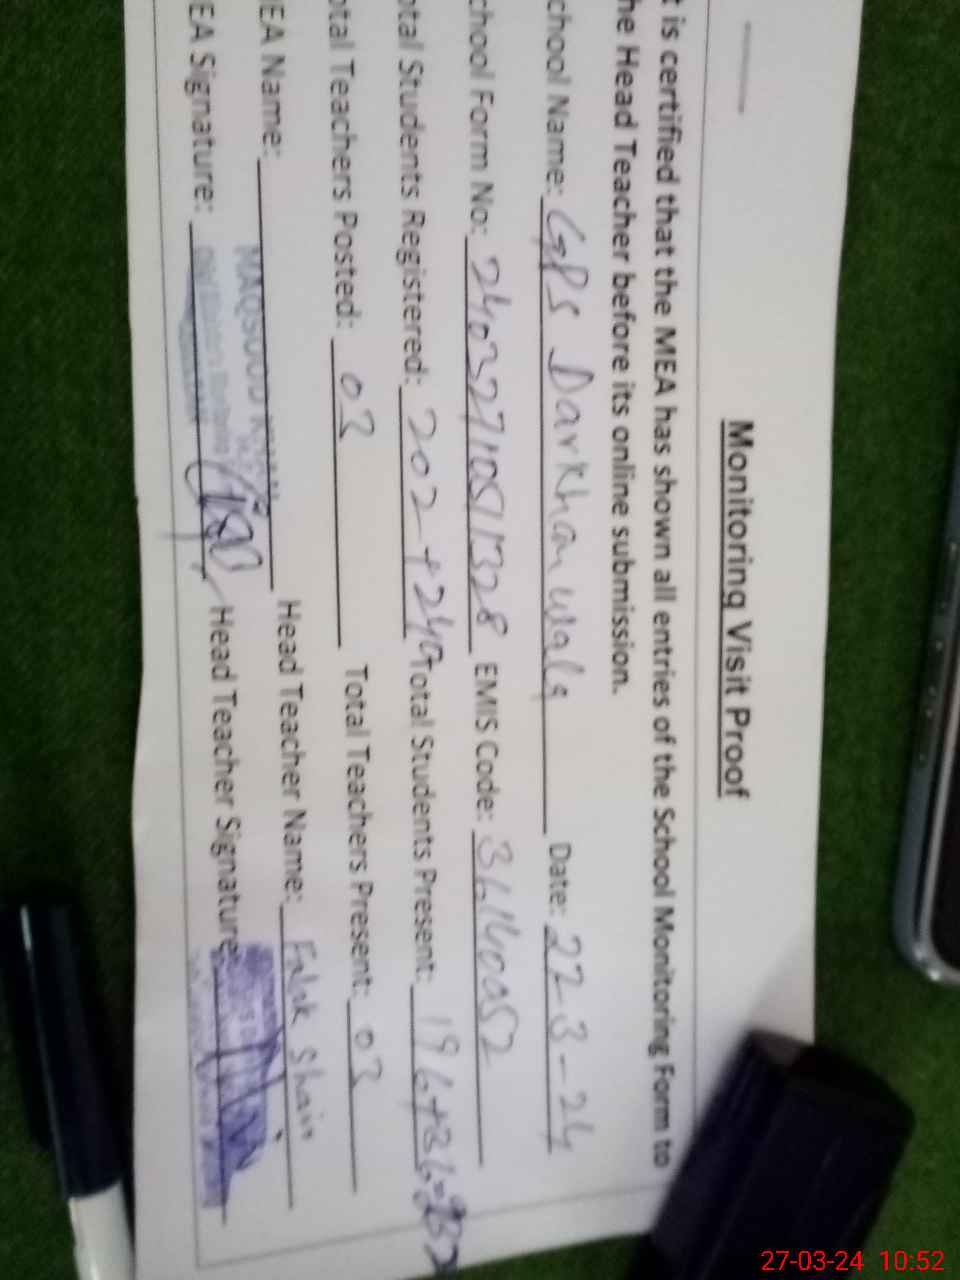 Monitoring Visit Proof
t is certified that the MEA has shown all entries of the School Monitoring Form to
he Head Teacher before its online submission.
chool Name: GPS Darkhanwala Date: 22-3-24
chool Form No: EMIS Code:
otal Students Registered: Total Students Present: 196+36=232
otal Teachers Posted: 03 Total Teachers Present: 03
EA Name: MAQSOOD Head Teacher Name: Falak
EA Signature: Head Teacher Signature:
27-03-24 10:52